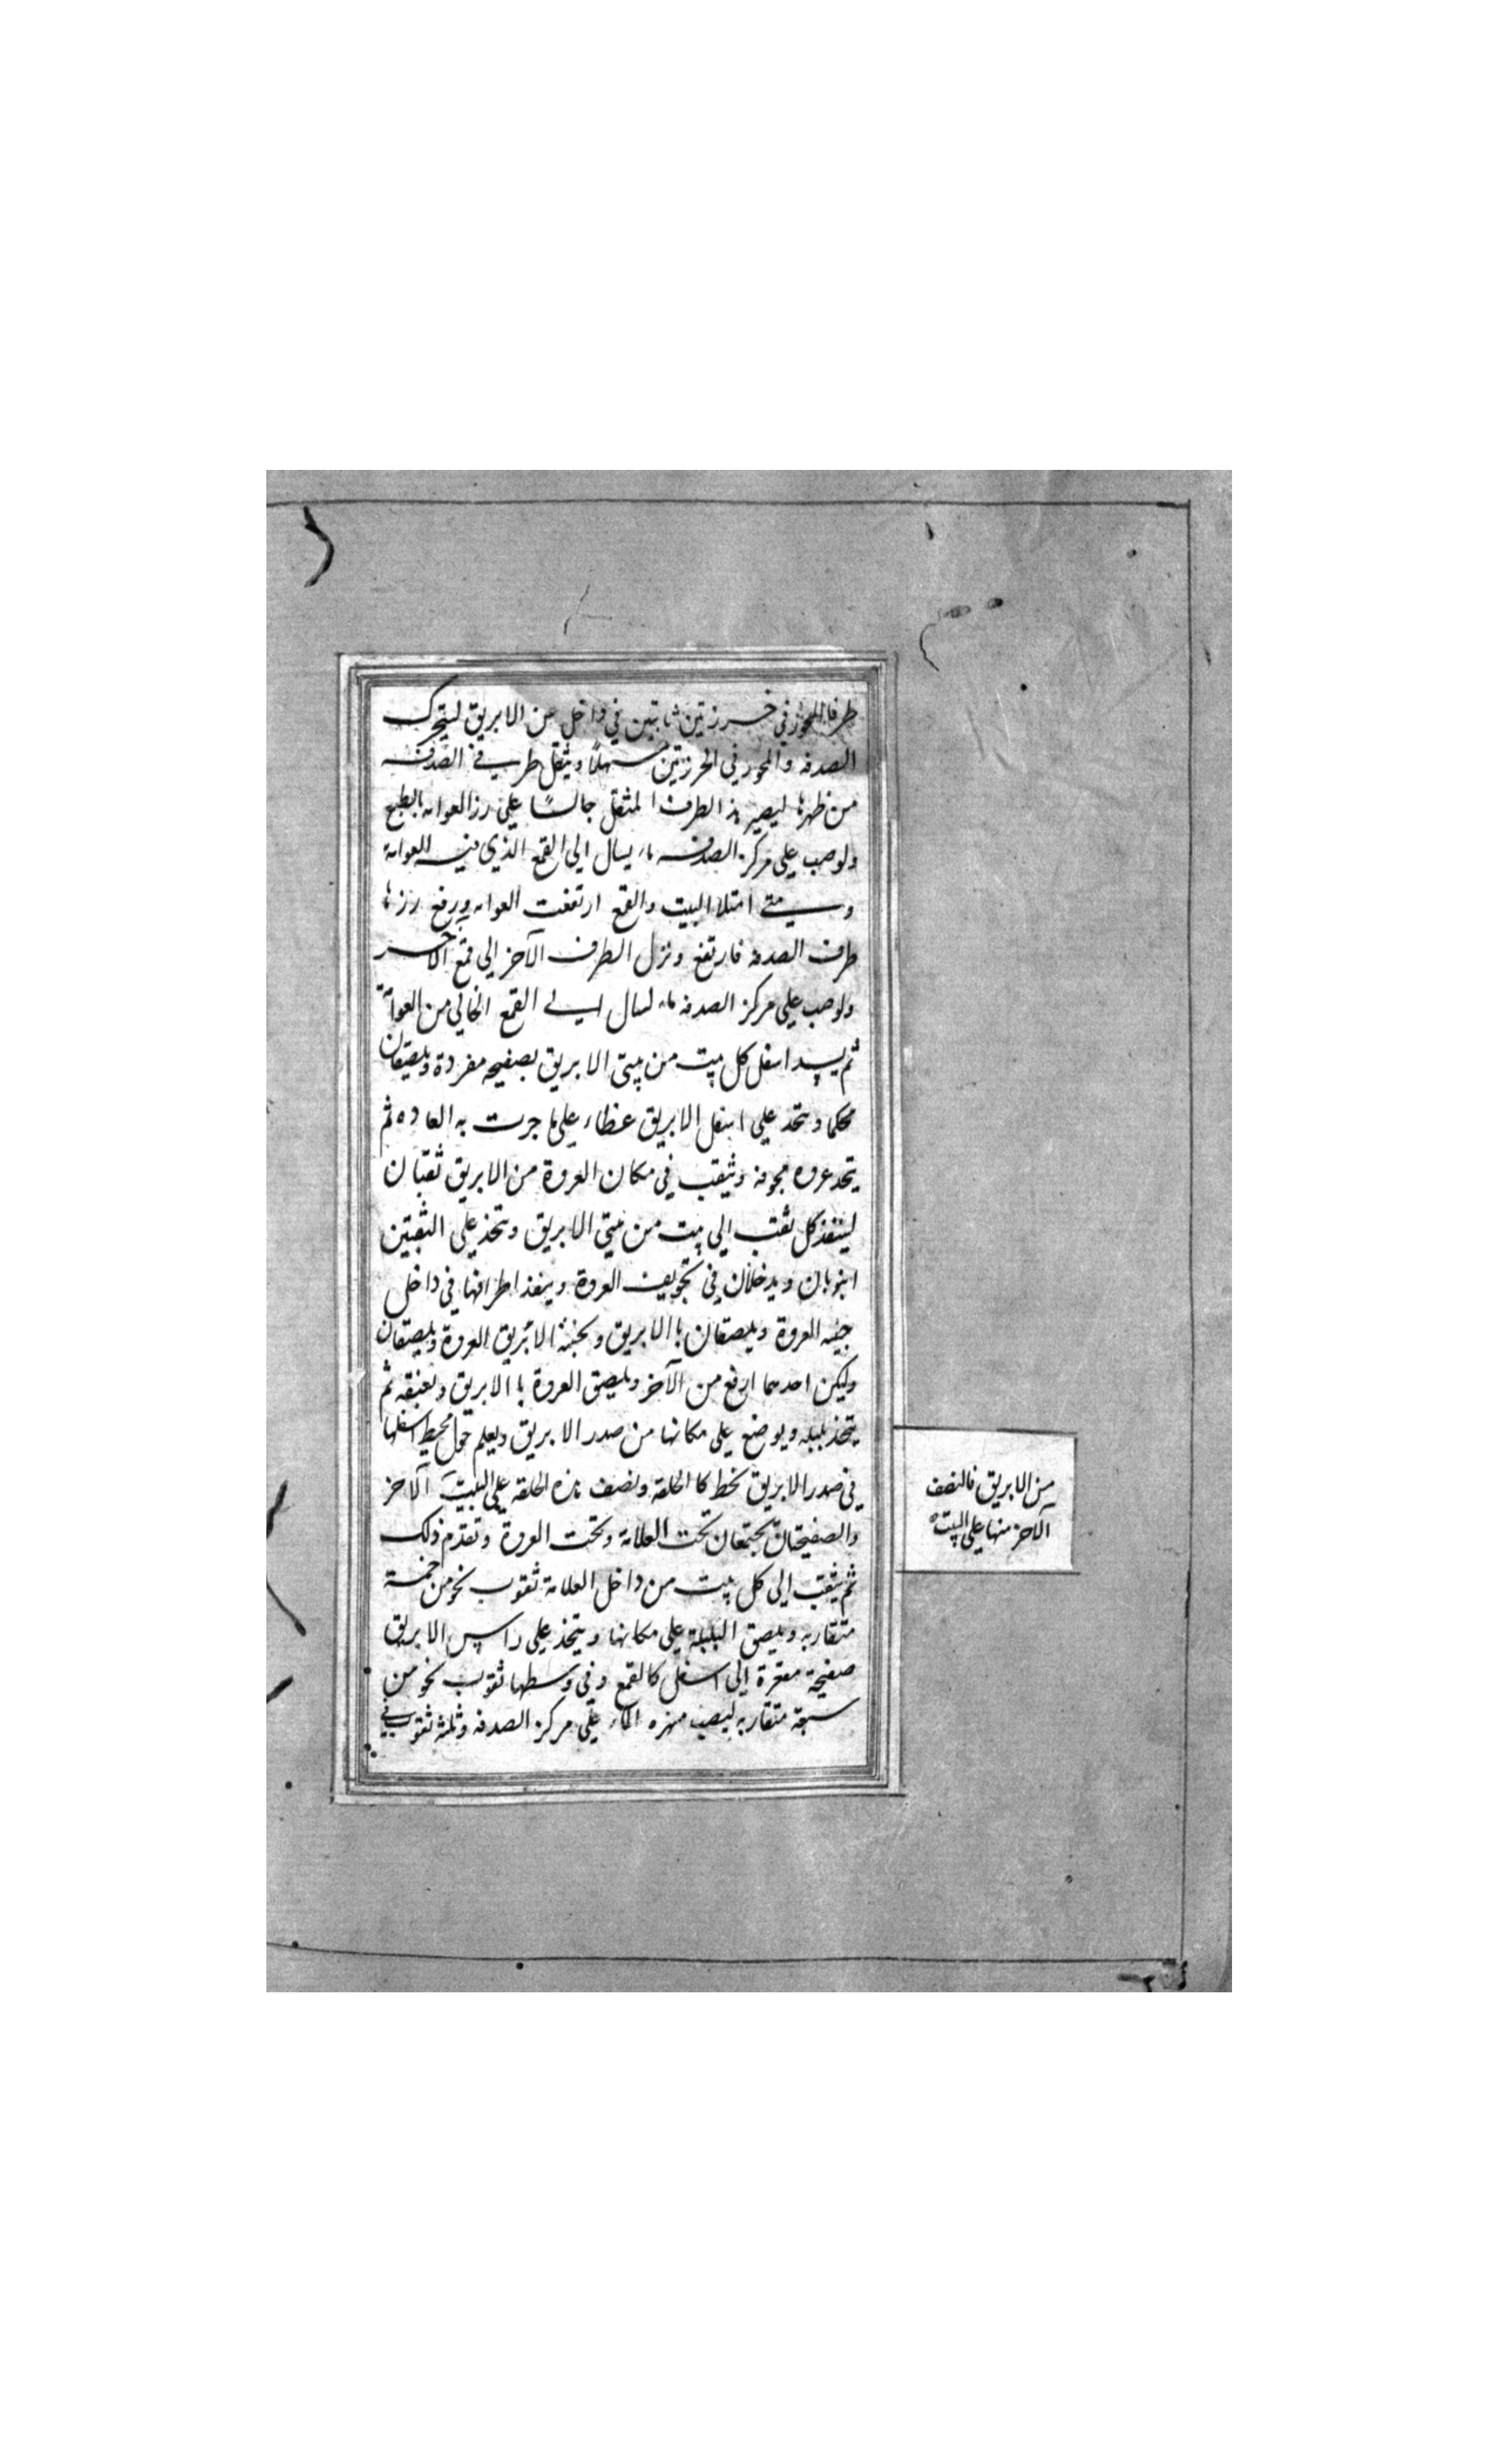 طرفا المحور في خرزتين ثابتتين في داخل عن الابريق ليتحرك
الصدفه والمحور في الخرزتين سهلاً ويثقل طرف في الصدفه
من ظهرها ليصير هذا الطرف المثقل جالسًا علي رز العوامه بالطبع
ولوصب علي مركز الصدفه ماء يسال الي القمع الذي فيه العوامة
ومتي امتلا البيت والقمع ارتفعت العوامه ورفع رزها
طرف الصدفه فارتفع ونزل الطرف الآخر الي قمع الآخر
ولوصب علي مركز الصدفه ماء لسال الي القمع الخالي من العوامة
ثم يسد اسفل كل بيت من بيتي الابريق بصفيحه مفردة ويلصقان
محكما ويتخذ علي اسفل الابريق غطاء علي ما جرت به العاده ثم
يتخذ عروه مجوفه ويثقب في مكان العروة من الابريق ثقبان
لينفذ كل ثقب الي بيت من بيتي الابريق ويتخذ علي الثقبتين
انبوبان ويدخلان في تجويف العروة وينفذ اطرافها في داخل
جنبه العروة ويلصقان با الابريق وبجنبة الابريق العروة ويلصقان
وليكن احدهما ارفع من الآخر ويلصق العروة با الابريق وبعنقه ثم
يتخذ بلبله ويوضع علي مكانها من صدر الابريق ويعلم حول محيط اسفلها
في صدر الابريق بخط كا الحلقه ونصف هذه الحلقه علي البيت الآخر
والصفيحتان تجتمعان تحت العلامة وتحت العروة وتقدم ذلك
ثم يثقب الي كل بيت من داخل العلامة ثقوب نحو من خمسة
متقاربه ويلصق البلبلة علي مكانها ويتخذ علي راس الابريق
صفيحة مقعرة الي اسفل كالقمع وفي وسطها ثقوب نحو من
سبعة متقاربه ليصب منهذه الماء علي مركز الصدفه وثلثة ثقوب في
من الابريق فالنصف
الآخر منها علي البيت